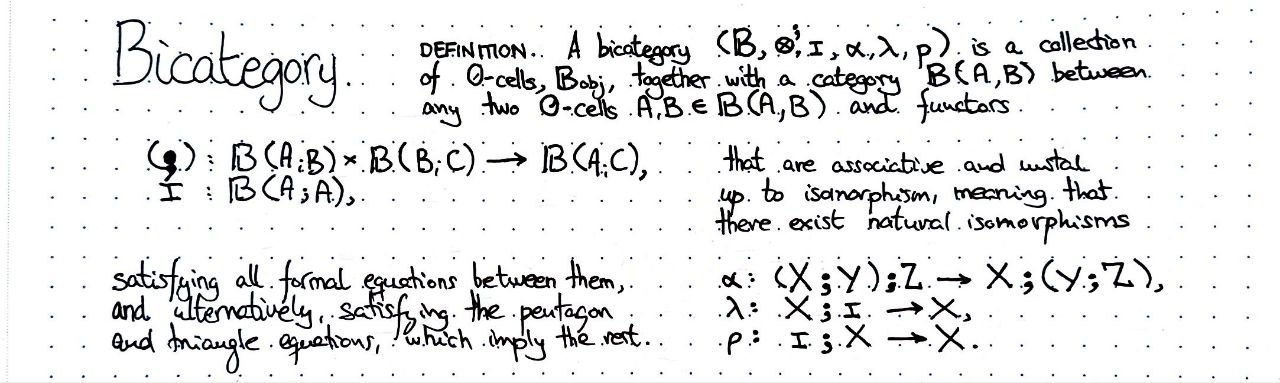 Bicategory.
DEFINITION.. A bicategory (𝔹, ⊗, I, α, λ, ρ) is a collection
of 0-cells, 𝔹obj, together with a category 𝔹(A,B) between
any two 0-cells A,B ∈ 𝔹(A,B) and functors
(⨾) : 𝔹(A;B) × 𝔹(B;C) → 𝔹(A;C),
I : 𝔹(A;A),
that are associative and unital
up to isomorphism, meaning that
there exist natural isomorphisms
α: (X⨾Y)⨾Z → X⨾(Y⨾Z),
λ: X⨾I → X,
ρ: I⨾X → X.
satisfying all formal equations between them,
and alternatively, satisfying the pentagon
and triangle equations, which imply the rest.